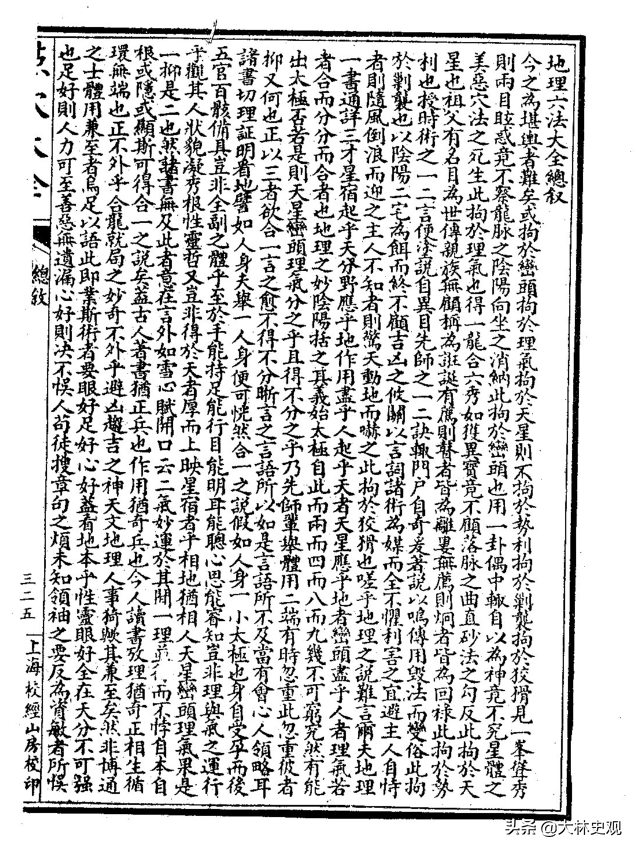 地理六法大全總叙
今之為堪輿者難矣或拘於巒頭拘於理氣拘於天星則不拘於勢利拘於剿襲拘於狡猾見一峯聳秀
則兩目眩惑竟不察龍脉之陰陽向坐之消納此拘於巒頭也用一卦偶中輒自以為神竟不究星體之
美惡穴法之死生此拘於理氣也得一龍合六秀如獲異寶竟不顧落脉之曲直砂法之勾反此拘於天
星也祖父有名目為世傳親族無顧稱為誑誕有薦則瞽者皆為離婁無薦則炯者皆為回祿此拘於勢
利也授時術之一二言便塗說自異目先師之一二訣輒門户自奇爰著說以鳴傳用毀法而變俗此拘
於剿襲也以陰陽二宅為餌而終不顧吉凶之攸關以言詞諸術為媒而全不懼利害之宜避主人自恃
者則隨風倒浪而迎之主人不知者則驚天動地而嚇之此拘於狡猾也嗟乎地理之說難言爾夫地理
一書通詳三才星宿起乎天分野應乎地作用盡乎人起乎天者天星應乎地者巒頭盡乎人者理氣若
者合而分分而合者也地理之妙陰陽括之其義始太極自此而兩而四而八而九幾不可窮究然有能
出太極否若是則天星巒頭理氣分之乎且得不分之乎乃先師舉體用二端有時忽重此忽重彼者
抑又何也正以三者欲合一言之愈不得不分晰言之言語所以如是言語所不及當有會心人領略耳
諸書切理証明看地譬如人身夫舉一人身便可恍然合一之說假如人身一小太極也身自受孕而後
五官百骸備具豈非全副之體乎至於手能持足能行目能明耳能聰心思能睿知豈非理與氣之運行
乎觀其人狀貌凝秀根性靈哲又豈非得於天者厚而上映星宿者乎相地猶相人天星巒頭理氣果是
一抑是二也然諸書無及此者意在言外如雪心賦開口云二氣妙運於其間一理並行而不悖自本自
根或隱或顯斯可得合一之說矣蓋古人著書猶正兵也作用猶奇兵也今人讀書攷理猶奇正相生循
環無端也正不外乎合龍就局之妙奇不外乎避凶趨吉之神天文地理人事猗歟其兼至矣然非博通
之士體用兼至者烏足以語此即業斯術者要眼好足好心好蓋看地本乎性靈眼好全在天分不可強
也足好則人力可至善惡無遺漏心好則决不悮人苟徒搜章句之煩未知領袖之要反為資敏者所悮
總敘
三二五
上海校經山房校印
头条@大林史观